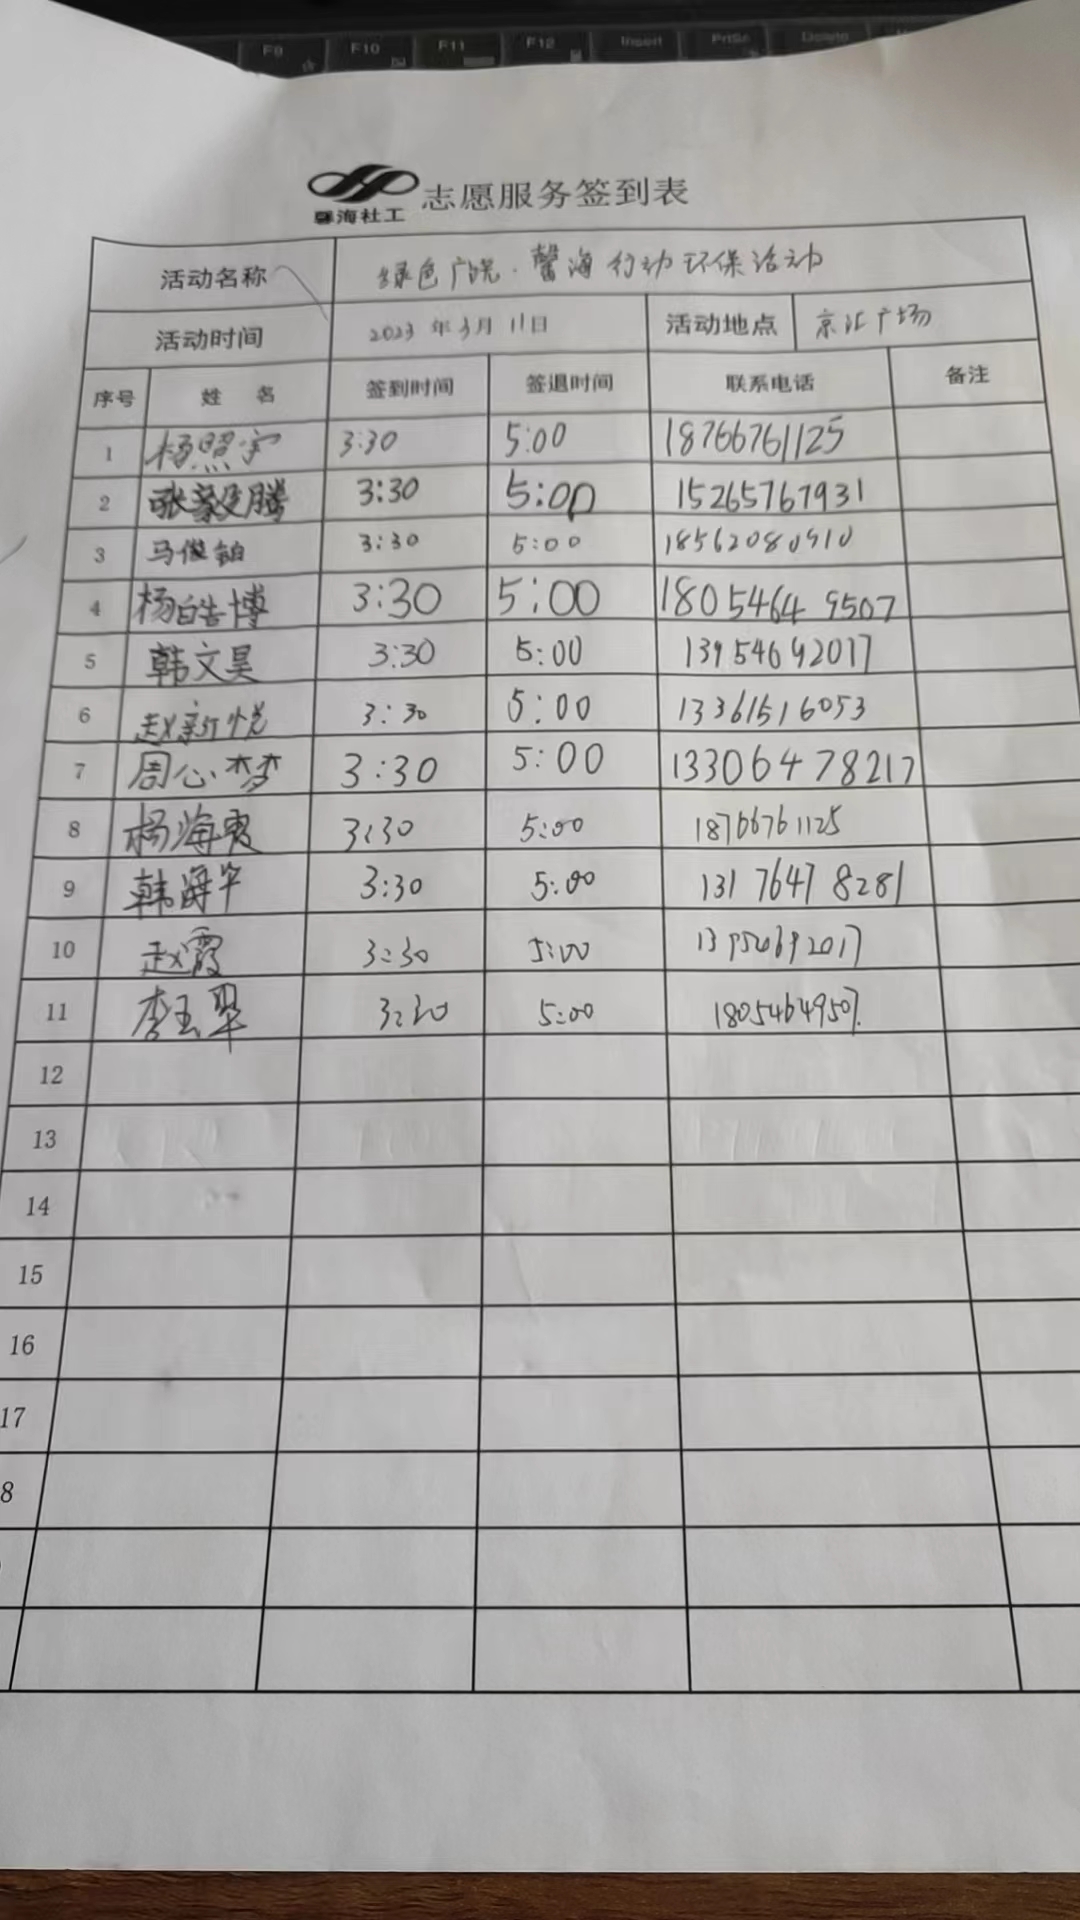 F9 F10 F11 F12 Insert PrtSc Delete
馨海社工 志愿服务签到表
活动名称 绿色广饶·馨海行动环保活动
活动时间 2023年3月11日 活动地点 京汇广场
序号 姓 名 签到时间 签退时间 联系电话 备注
1 杨照宇 3:30 5:00 18766761125
2 张毅腾 3:30 5:00 15265767931
3 马俊铂 3:30 5:00 18562080910
4 杨皓博 3:30 5:00 18054649507
5 韩文昊 3:30 5:00 13954692017
6 赵新悦 3:30 5:00 13361516053
7 周心梦 3:30 5:00 13306478217
8 杨海霞 3:30 5:00 18766761125
9 韩海军 3:30 5:00 13176478281
10 赵霞 3:30 5:00
11 李玉翠 3:30 5:00 18054649507.
12
13
14
15
16
17
8